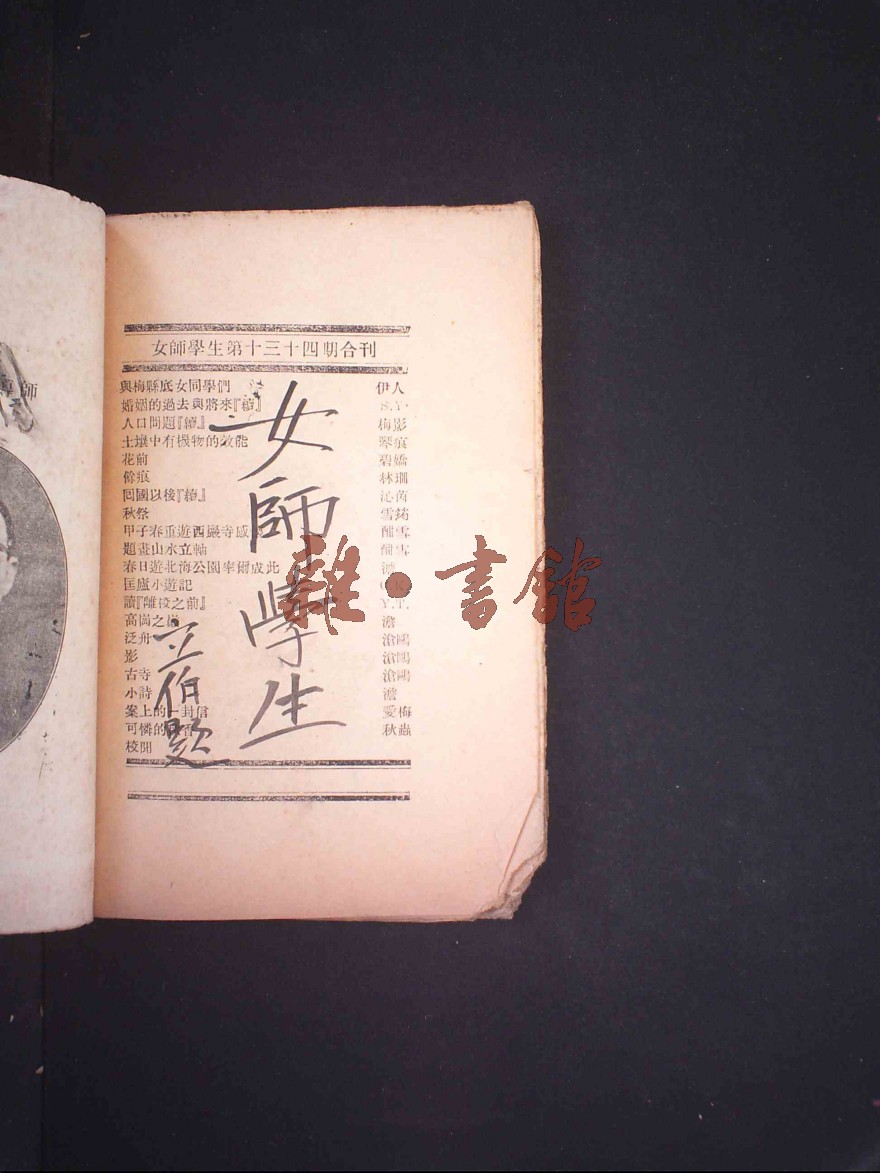 女師學生第十三十四期合刊
與梅縣底女同學們 伊人
婚姻的過去與將來『續』 S.Y.
人口問題『續』 梅影
土壤中有機物的效能 翠痕
花前 碧嬌
餘痕 林珊
囘國以後『續』 沁茵
秋祭 雪銘
甲子春重遊西巖寺感 醋雪
題畫山水立軸 醋雪
春日遊北海公園率爾成此
匡廬小遊記
讀『離校之前』 Y.T.
高崗之 澹
泛舟 滄鷗
影 滄鷗
古寺 滄鷗
小詩 澹
案上的一封信 愛梅
可憐的 秋蟲
校聞
女師學生
立伯題
雜·書館
導師